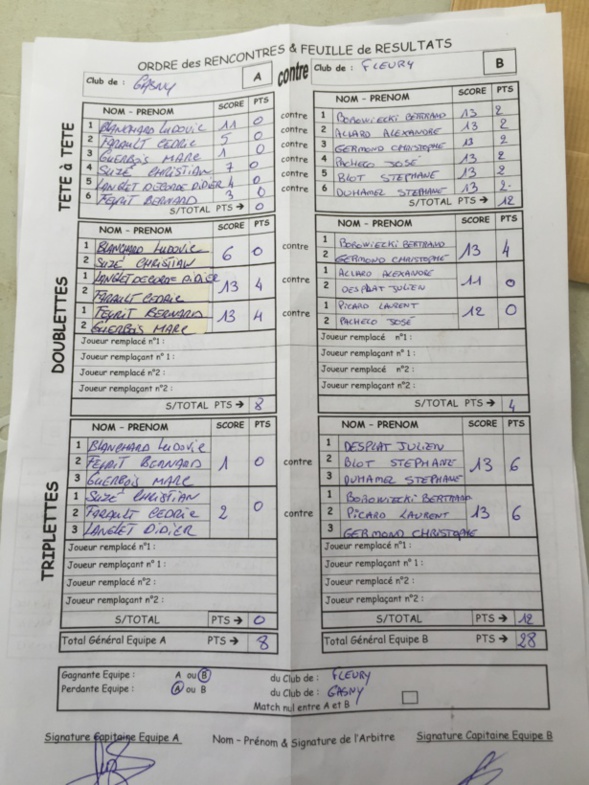 ORDRE des RENCONTRES & FEUILLE de RESULTATS
Club de : GAGNY A contre Club de : FLEURY B
TETE à TETE
NOM - PRENOM SCORE PTS contre NOM - PRENOM SCORE PTS
1 BLANCHARD Ludovic 11 0 contre 1 BOROWIECKI BERTRAND 13 2
2 FARAULT CEDRIC 5 0 contre 2 ACLARD ALEXANDRE 13 2
3 GUERBOIS MARC 1 0 contre 3 GERMOND CHRISTOPHE 13 2
4 SUZÉ CHRISTIAN 7 0 contre 4 PACHECO JOSÉ 13 2
5 LANGLET DECORDE DIDIER 4 0 contre 5 BLOT STEPHANE 13 2
6 FEYRIT BERNARD 3 0 contre 6 DUHAMEL STEPHANE 13 2
S/TOTAL PTS → 0 S/TOTAL PTS → 12
DOUBLETTES
NOM - PRENOM SCORE PTS NOM - PRENOM SCORE PTS
1 BLANCHARD Ludovic 6 0 contre 1 BOROWIECKI BERTRAND 13 4
2 SUZÉ CHRISTIAN 2 GERMOND CHRISTOPHE
1 LANGLET DECORDE DIDIER 13 4 contre 1 ACLARD ALEXANDRE 11 0
2 FARAULT CEDRIC 2 DESPLAT JULIEN
1 FEYRIT BERNARD 13 4 contre 1 PICARD LAURENT 12 0
2 GUERBOIS MARC 2 PACHECO JOSÉ
Joueur remplacé n°1 : Joueur remplacé n°1 :
Joueur remplaçant n° 1 : Joueur remplaçant n° 1 :
Joueur remplacé n°2 : Joueur remplacé n°2 :
Joueur remplaçant n°2 : Joueur remplaçant n°2 :
S/TOTAL PTS → 8 S/TOTAL PTS → 4
TRIPLETTES
NOM - PRENOM SCORE PTS NOM - PRENOM SCORE PTS
1 BLANCHARD Ludovic 1 DESPLAT JULIEN
2 FEYRIT BERNARD 1 0 contre 2 BLOT STEPHANE 13 6
3 GUERBOIS MARC 3 DUHAMEL STEPHANE
1 SUZÉ CHRISTIAN 1 BOROWIECKI BERTRAND
2 FARAULT CEDRIC 2 0 contre 2 PICARD LAURENT 13 6
3 LANGLET DIDIER 3 GERMOND CHRISTOPHE
Joueur remplacé n°1 : Joueur remplacé n°1 :
Joueur remplaçant n° 1 : Joueur remplaçant n° 1 :
Joueur remplacé n°2 : Joueur remplacé n°2 :
Joueur remplaçant n°2 : Joueur remplaçant n°2 :
S/TOTAL PTS → 0 S/TOTAL PTS → 12
Total Général Equipe A PTS → 8 Total Général Equipe B PTS → 28
Gagnante Equipe : A ou B du Club de : FLEURY
Perdante Equipe : A ou B du Club de : GAGNY
Match nul entre A et B
Signature Capitaine Equipe A Nom - Prénom & Signature de l'Arbitre Signature Capitaine Equipe B